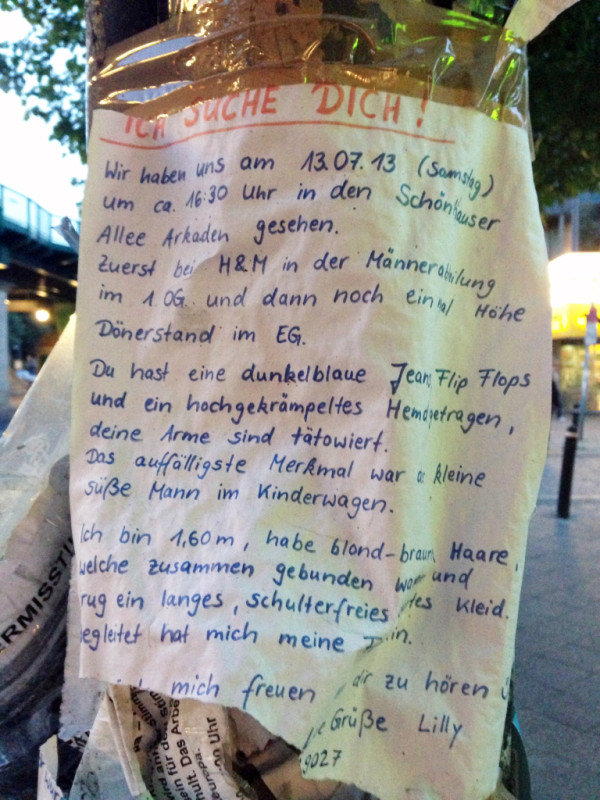 ICH SUCHE DICH!
Wir haben uns am 13.07.13 (Samstag)
um ca. 16:30 Uhr in den Schönhauser
Allee Arkaden gesehen.
Zuerst bei H&M in der Männerabteilung
im 1.OG. und dann noch einmal Höhe
Dönerstand im EG.
Du hast eine dunkelblaue Jeans Flip Flops
und ein hochgekrämpeltes Hemd getragen,
deine Arme sind tätowiert.
Das auffälligste Merkmal war kleine
süße Mann im Kinderwagen.
Ich bin 1,60m, habe blond-braune Haare,
welche zusammen gebunden und
rug ein langes, schulterfreies Kleid.
egleitet hat mich meine
mich freuen dir zu hören
Grüße Lilly
9027
ERMISSTE